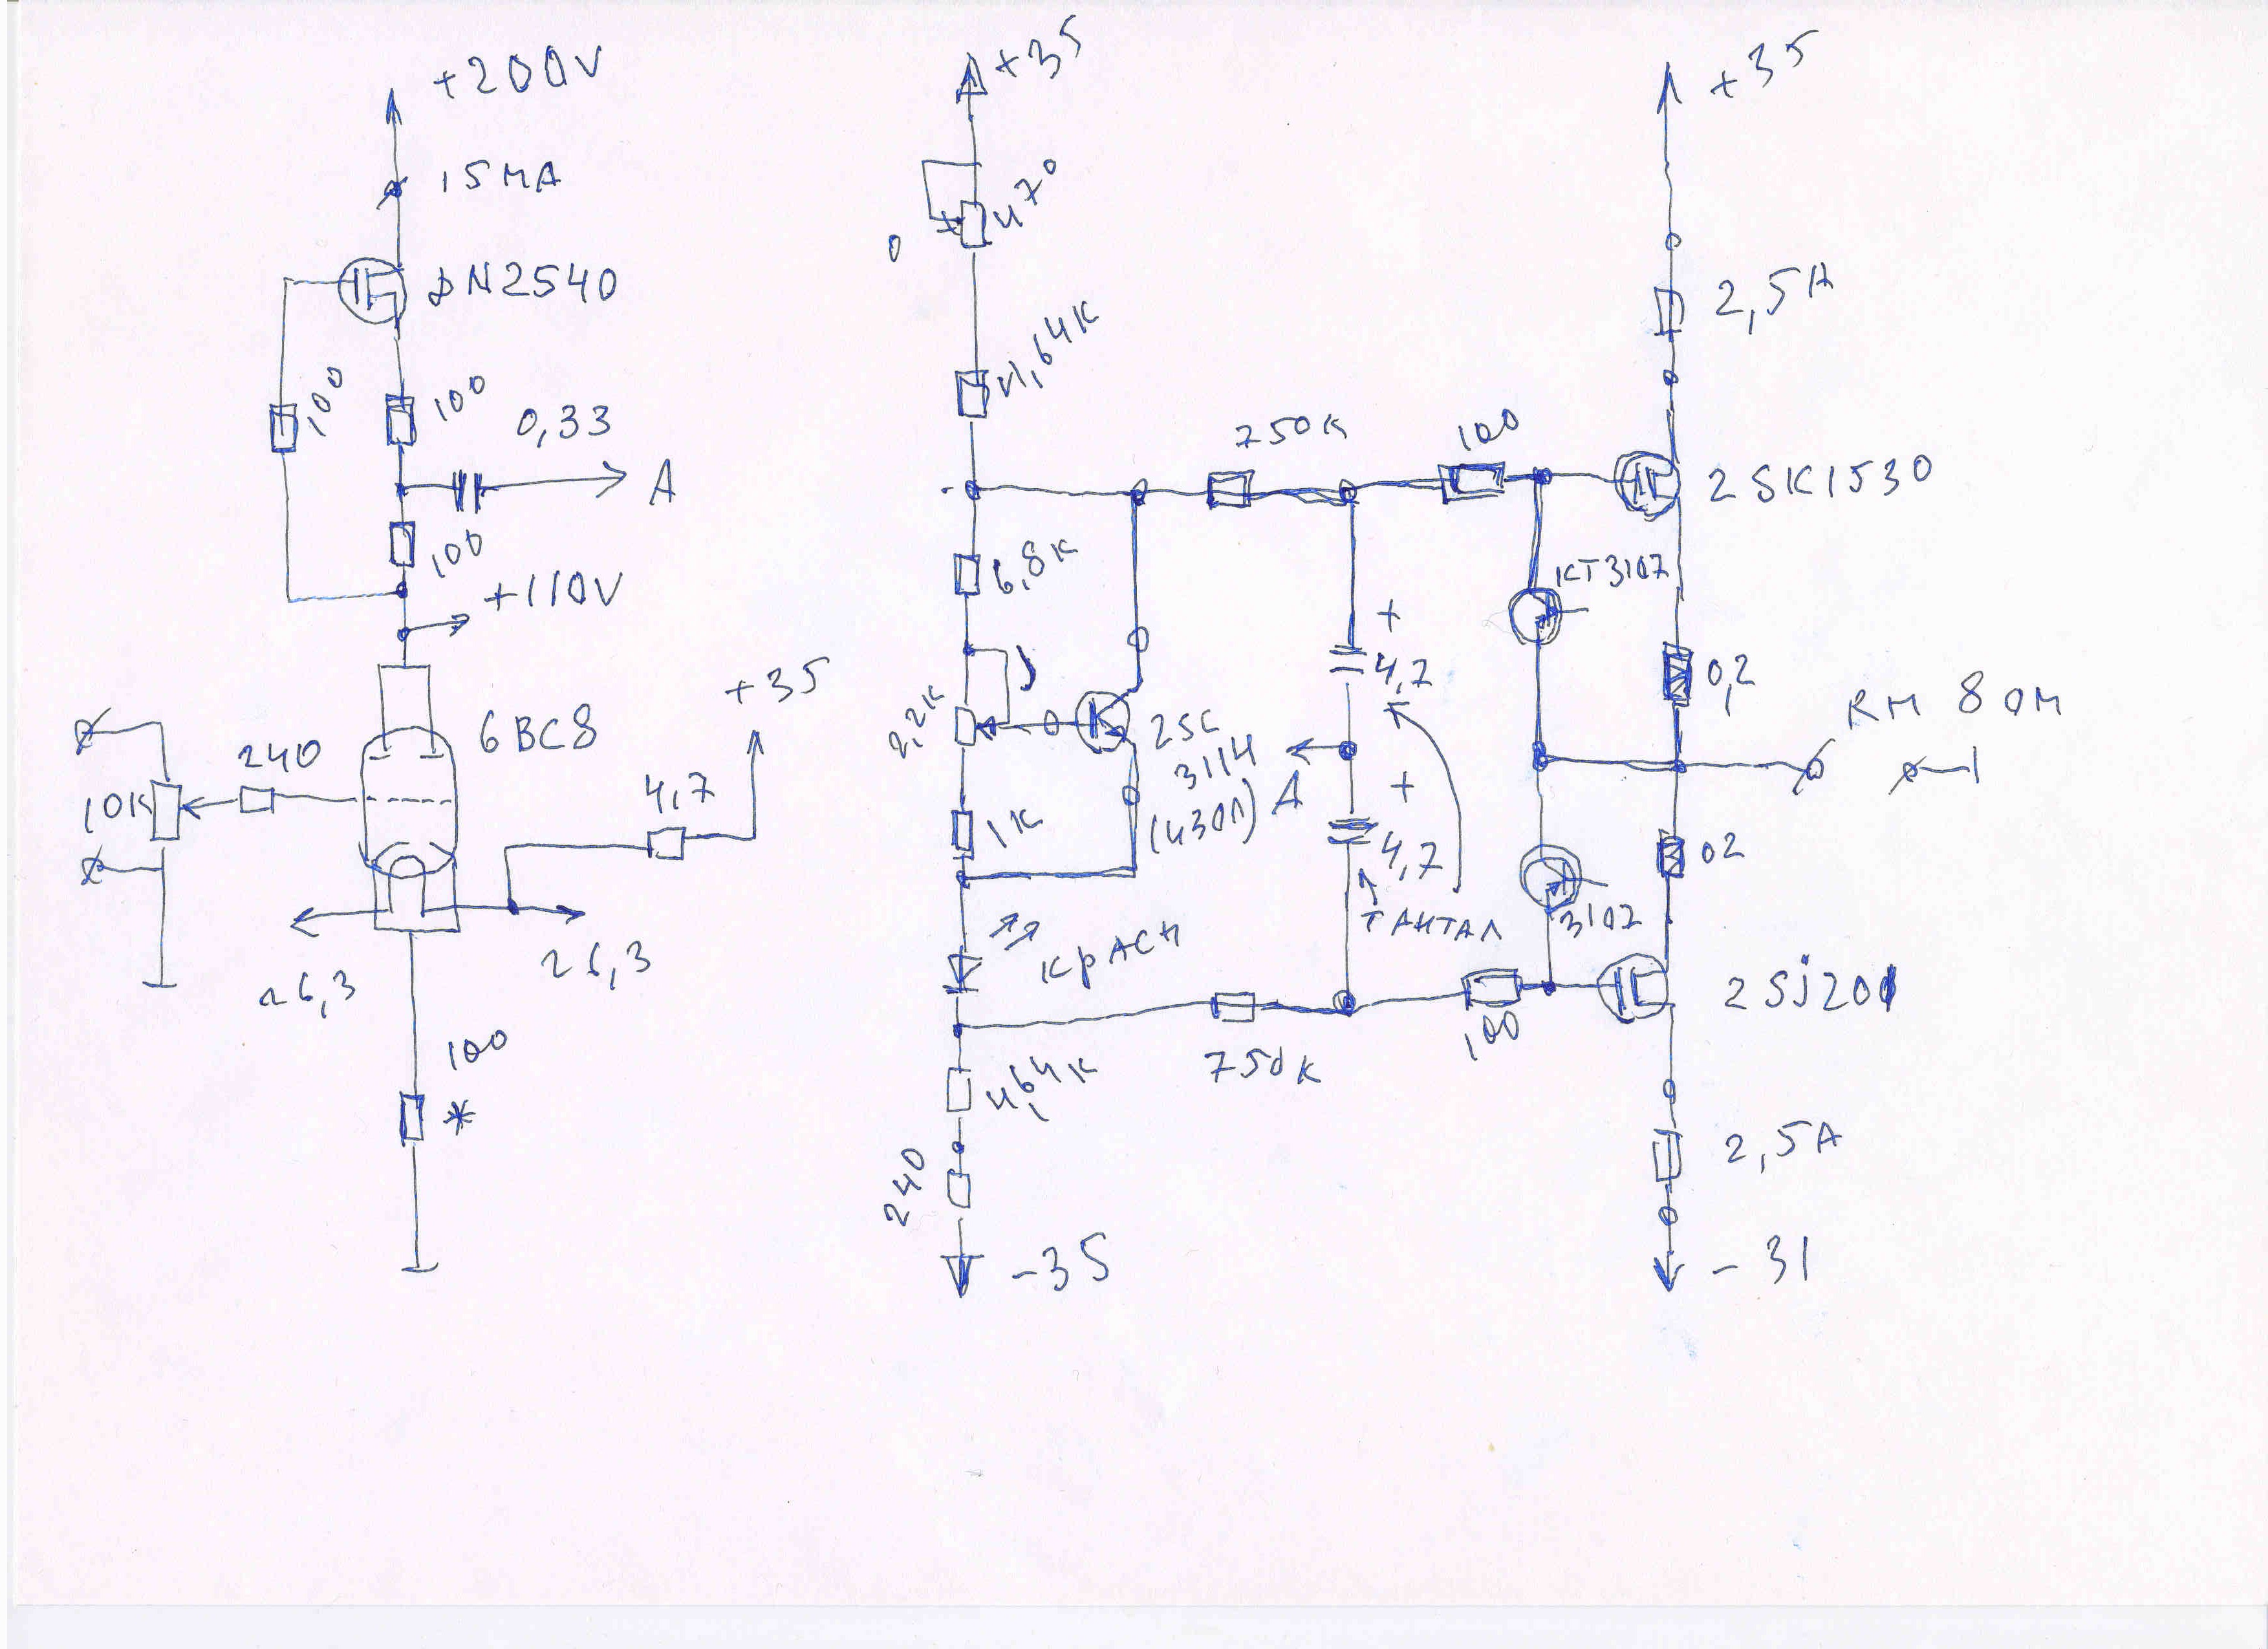 +200V
15MA
DN2540
100
100
0,33
A
100
+110V
6BC8
240
10K
4,7
+35
~6,3
~6,3
100
*
+35
470
0
4,64K
6,8K
2,2K
2SC
3114
(430Л)
1K
КРАСН
4,64K
240
-35
750K
100
+
4,7
A
+
4,7
ТАНТАЛ
750K
100
+35
2,5A
2SK1530
КТ3107
0,2
RН 8 ОМ
02
3107
2SJ201
2,5A
-31